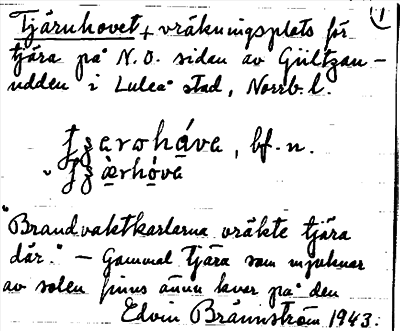 Tjäruhovet + vräkningsplats för (1
tjära på N.O. sidan av Gültzau-
udden i Luleå stad, Norrb. l.
bf. n.
"Brandvaktkarlarna vräkte tjära
där." – Gammal tjära som mjuknar
av solen finns ännu kvar på den
Edvin Brännström 1943.